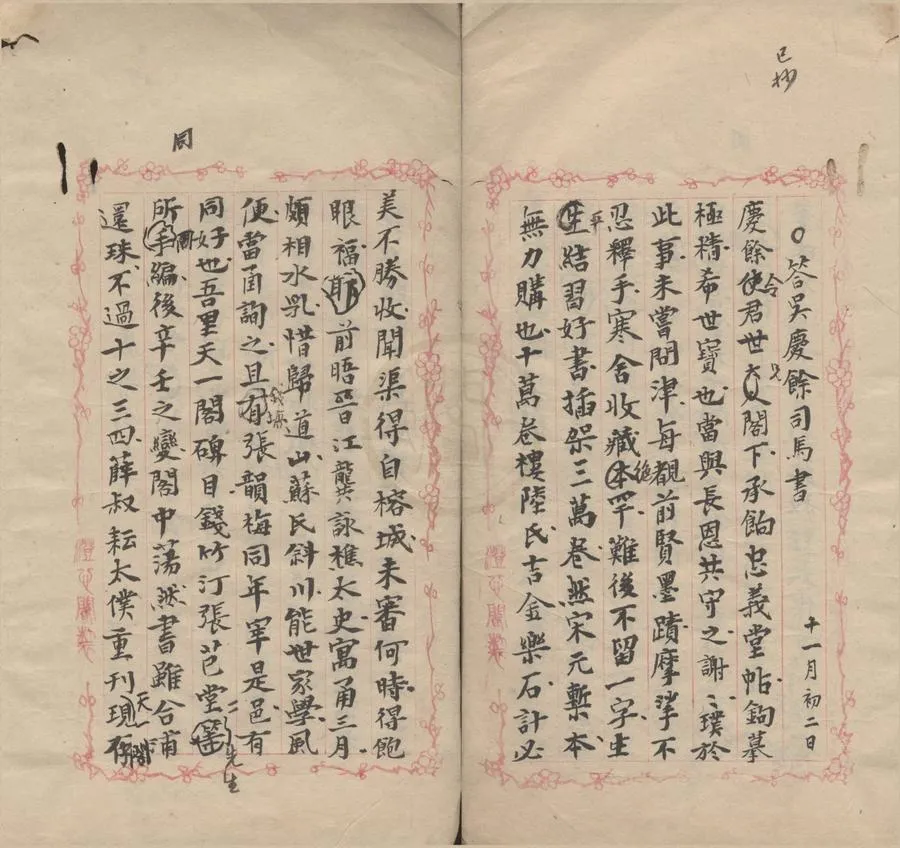 已抄
○答吴慶餘司馬書
十一月初二日
慶餘使君世大兄閣下承飴忠義堂帖鈎摹
極精希世寶也當與長恩共守之謝〻璞於
此事未嘗問津每觀前賢墨蹟摩挲不
忍釋手寒舍收藏本罕難後不留一字生
平結習好書插架三萬卷然宋元槧本
無力購也十萬卷樓陸氏吉金樂石計必
同
美不勝收聞渠得自榕城未審何時得飽
眼福耶前晤晉江龔詠樵太史寓甬三月
頗相水乳惜歸道山蘇氏斜川能世家學風
便當函詢之且有張韻梅同年宰是邑有
同好也吾里天一閣碑目錢竹汀張芑堂二先生
所手編後辛壬之變閣中蕩然書雖合浦
還珠不過十之三四薛叔耘太僕重刊天一閣現存